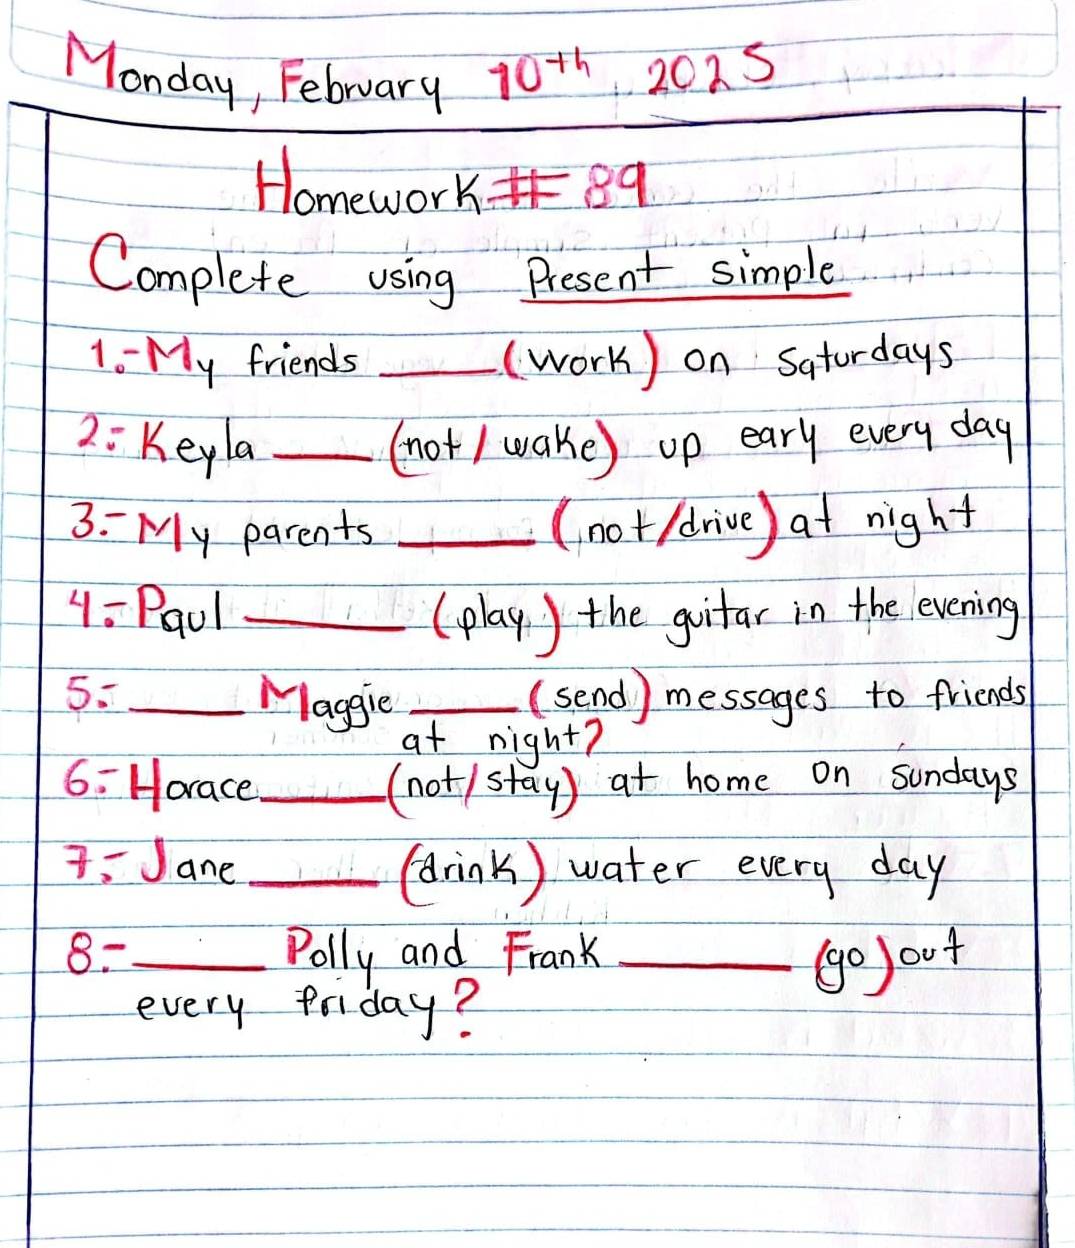 Monday, February 10th 2025
Homework # 89
Complete using Present simple
1.- My friends ____ (work) on Saturdays
2.- Keyla ____ (not/wake) up early every day
3.- My parents ____ (not/drive) at night
4.- Paul ____ (play) the guitar in the evening
5.- ____ Maggie ____ (send) messages to friends
at night?
6.- Horace ____ (not/stay) at home on Sundays
7.- Jane ____ (drink) water every day
8.- ____ Polly and Frank ____ (go) out
every friday?